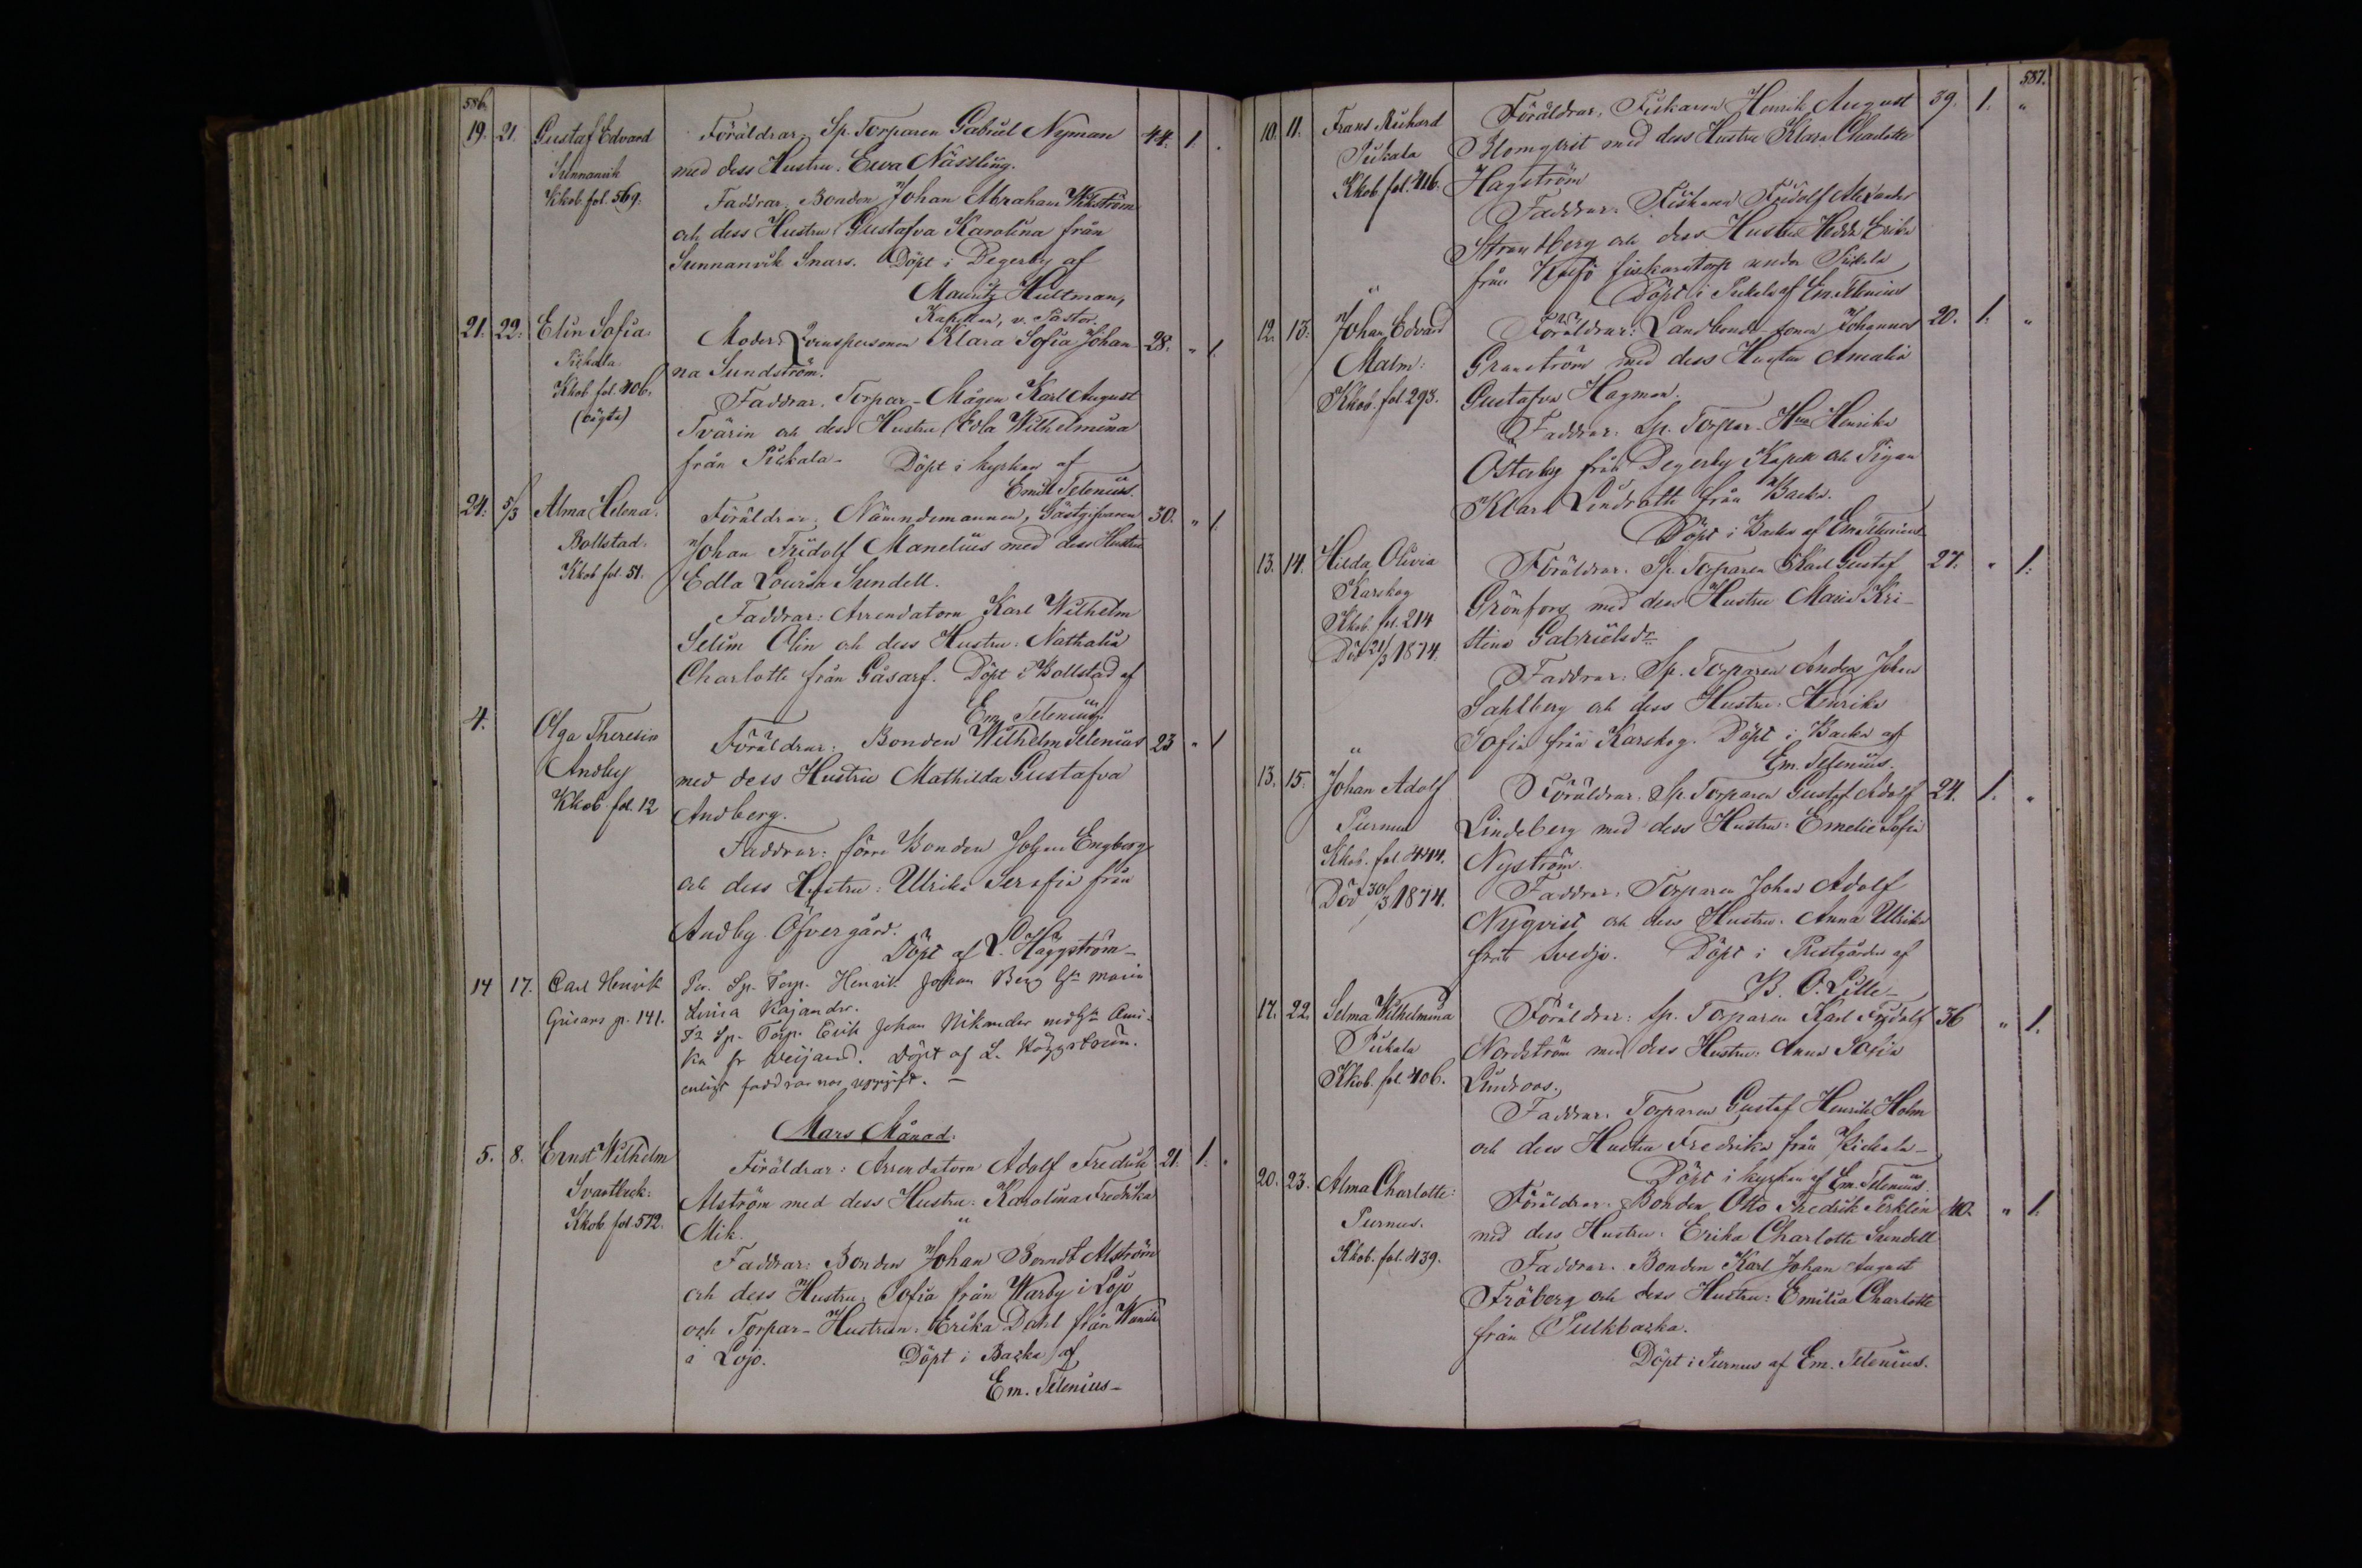 586.
19. 21. Gustaf Edvard Föräldrar. Sp. Torparen Gabriel Nyman 44. 1. "
Sunnanvik med dess Hustru. Eva Nässling.
Kkob. fol. 569. Faddrar. Bonden Johan Abraham Wikström
och dess Hustru Gustafva Karolina från
Sunnanvik Snars. Döpt i Degerby af
Mauritz Hultman,
Kapellan, v. Pastor.
21. 22. Elin Sofia. Moder: Qvinspersonen Klara Sofia Johan 28. " 1.
Pickala na Sundström.
Kkob. fol. 406. Faddrar. Torpar-Mågen Karl August
(oägta) Tvärin och dess Hustru Edla Wilhelmina
från Pickala. Döpt i kyrkan af
Emil Telenius.
24. 5/3 Alma Helena. Föräldrar. Nämndemannen, Gästgifvaren 30. " 1.
Bollstad. Johan Fridolf Manelius med dess Hustru
Kkob. fol. 51. Edla Lovisa Sundell.
Faddrar: Arrendatorn Karl Wilhelm
Selim Olin och dess Hustru: Nathalia
Charlotte från Gåsarf. Döpt i Bollstad af
Em. Telenius.
4. Olga Theresia Föräldrar: Bonden Wilhelm Selenius 23 " 1
Andby med dess Hustru Mathilda Gustafva
Kkob. fol. 12 Andberg.
Faddrar: förre Bonden Johan Engberg
och dess Hustru: Ulrika Serafia från
Andby Öfvergård.
Döpt af L. Häggström-
14 17. Carl Henrik Sp. Torp. Henrik Johan Berg hu Maria
Grisans p. 141. Lovisa Kajander.
Sp. Torp. Erik Johan Nikander med hu
fr Döpt af L. Häggström.
enligt faddrarnas uppgift. -
Mars Månad.
5. 8. Ernst Wilhelm Föräldrar: Arrendatorn Adolf Fredrik 21. 1. "
Svartbäck: Alström med dess Hustru: Karolina Fredrika
Kkob. fol. 572. Mik.
Faddrar: Bonden Johan Berndt Alström
och dess Hustru: Sofia från Warby i Lojo
och Torpar-Hustrun: Erika Dahl från
i Lojo. Döpt i Backa af
Em. Telenius-
587.
10. 11. Frans Rickard Föräldrar, Fiskaren Henrik August 39. 1. "
Pickala Blomqvist med dess Hustru Klara Charlotte
Kkob. fol. 416. Hagström
Faddrar. Fiskaren Fridolf Alexander
Strandberg och dess Hustru Hedda Erika
från fiskaretorp under Pickala
Döpt i Pickala af Em. Telenius
12. 13. Johan Edvard Föräldrar: Landbonde sonen Johannes 20. 1. "
Malm: Granström med dess Hustru Amalia
Kkob. fol. 293. Gustafva Hagman.
Faddrar. Sp. Torpar. Hu Henrika
Österberg från Degerby Kapell och Pigan
Klara Lindratt från Backa.
Döpt i Backa af Em Telenius
13. 14. Hilda Olivia Föräldrar. Sp. Torparen Karl Gustaf 27. " 1.
Karskog Grönfors med dess Hustru Maria Kri-
Kkob. fol. 214 stina Gabrielsdr
Död 21/3 1874. Faddrar: Sp. Torparen Anders Johan
Sahlberg och dess Hustru. Henrika
Sofia från Karskog. Döpt i Backa af
Em. Telenius.
13. 15. Johan Adolf Föräldrar. Sp. Torparen Gustaf Adolf 24. 1. "
Purnus Lindeberg med dess Hustru: Emelie Sofia
Kkob. fol. 444. Nyström.
Död 30/3 1874. Faddrar. Torparen Johan Adolf
Nyqvist och dess Hustru. Anna Ulrika
från Svedja. Döpt i Prestgården af
B. O. Lille-
17. 22. Selma Wilhelmina Föräldrar: Sp. Torparen Karl Fridolf 36 " 1.
Pickala Nordström med dess Hustru: Anna Sofia
Kkob. fol. 406. Lindroos.
Faddrar. Torparen Gustaf Henrik Holm
och dess Hustru Fredrika från Pickala-
Döpt i kyrkan af Em. Telenius.
20. 23. Alma Charlotte: Föräldrar. Bonden Otto Fredrik Perklén 40. " 1.
Purnus. med dess Hustru. Erika Charlotte Sundell
Kkob. fol. 439. Faddrar. Bonden Karl Johan August
Fröberg och dess Hustru: Emilia Charlotte
från Pulkbacka.
Döpt i Purnus af Em. Telenius.